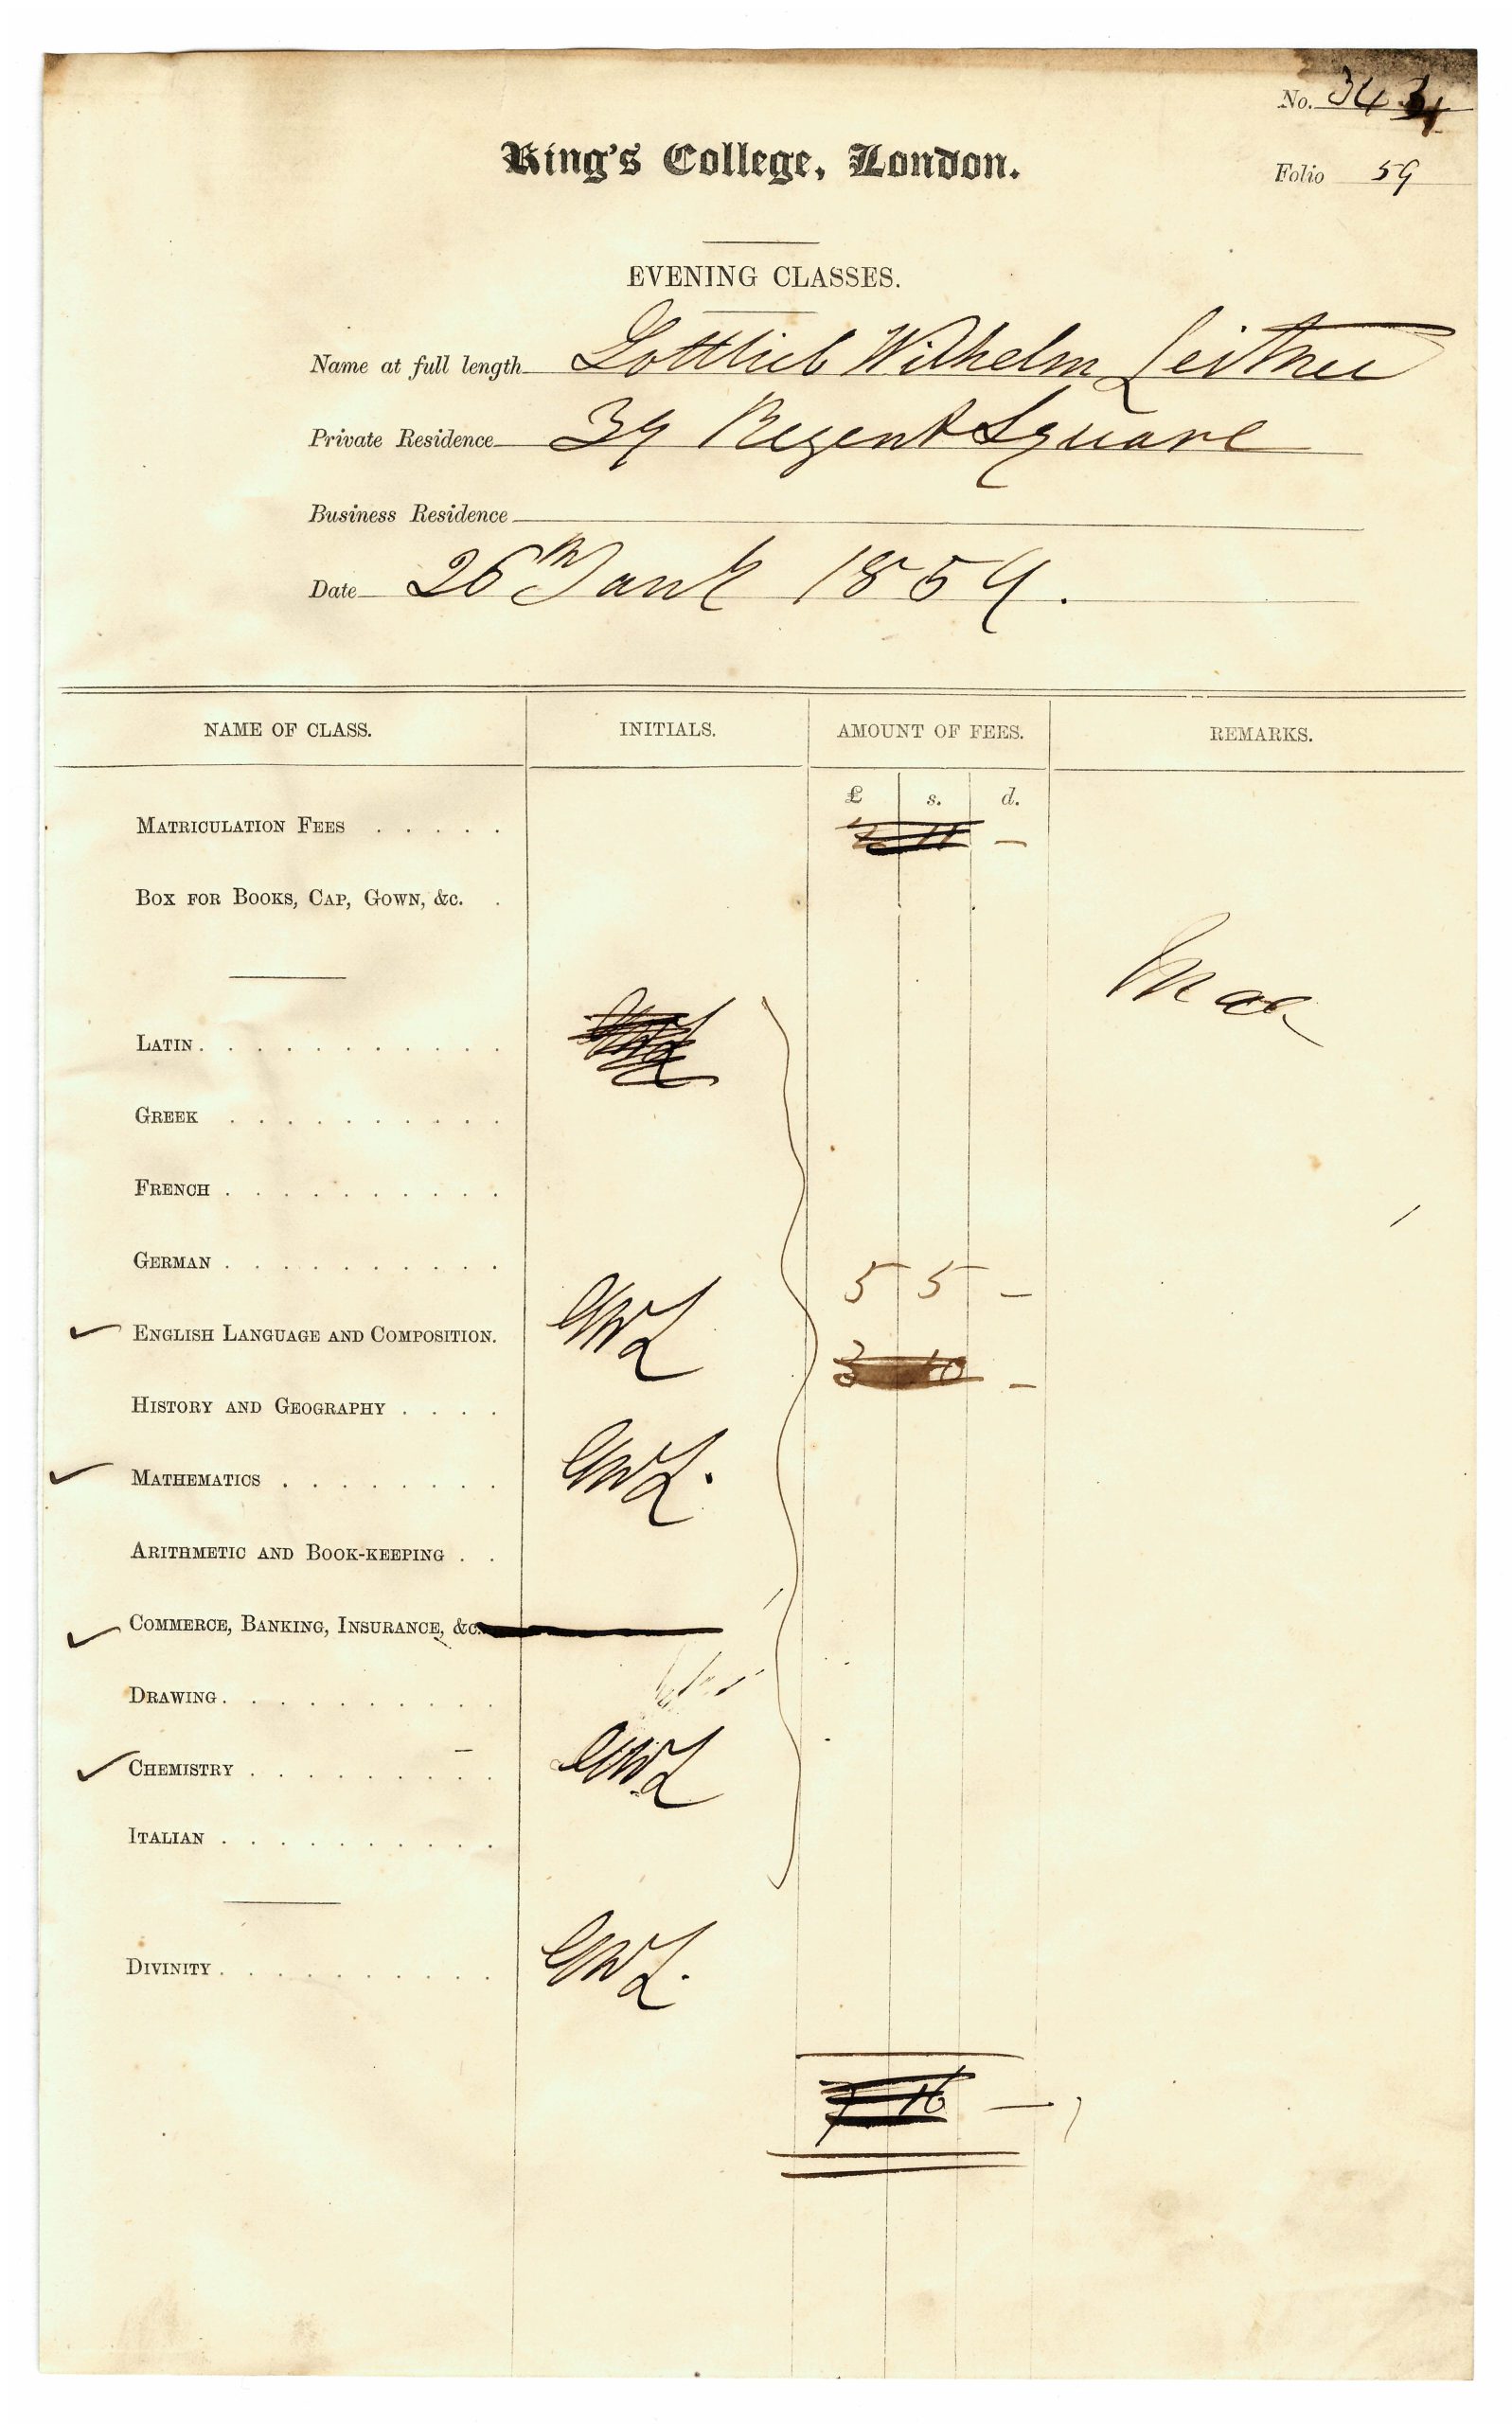 No. 343
King's College, London.
Folio 59
EVENING CLASSES.
Name at full length Gottlieb Wilhelm Leitner
Private Residence 39 Regent Square
Business Residence
Date 26th Jany 1859.
NAME OF CLASS. INITIALS. AMOUNT OF FEES. REMARKS.
£ s. d.
MATRICULATION FEES . . . . . –
BOX FOR BOOKS, CAP, GOWN, &c. .
LATIN . . . . . . . . . . . GWL
GREEK . . . . . . . . . .
FRENCH . . . . . . . . . .
GERMAN . . . . . . . . . . 5 5 –
ENGLISH LANGUAGE AND COMPOSITION. GWL
3 10 –
HISTORY AND GEOGRAPHY . . . .
MATHEMATICS . . . . . . . . GWL.
ARITHMETIC AND BOOK-KEEPING . .
COMMERCE, BANKING, INSURANCE, &c.
DRAWING . . . . . . . . . .
CHEMISTRY . . . . . . . . . GWL
ITALIAN . . . . . . . . . .
DIVINITY . . . . . . . . . . GWL.
16 –